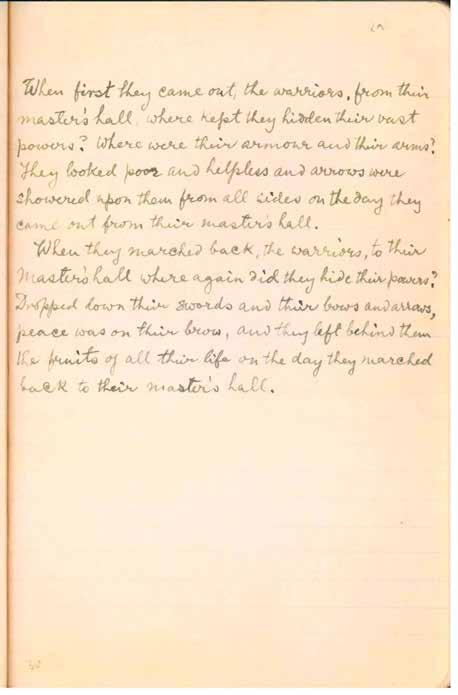 When first they came out, the warriors, from their
master's hall, where kept they hidden their vast
powers? Where were their armour and their arms?
They looked poor and helpless and arrows were
showered upon them from all sides on the day they
came out from their master's hall.
When they marched back, the warriors, to their
master's hall where again did they hide their powers?
Dropped down their swords and their bows and arrows,
peace was on their brow, and they left behind them
the fruits of all their life on the day they marched
back to their master's hall.